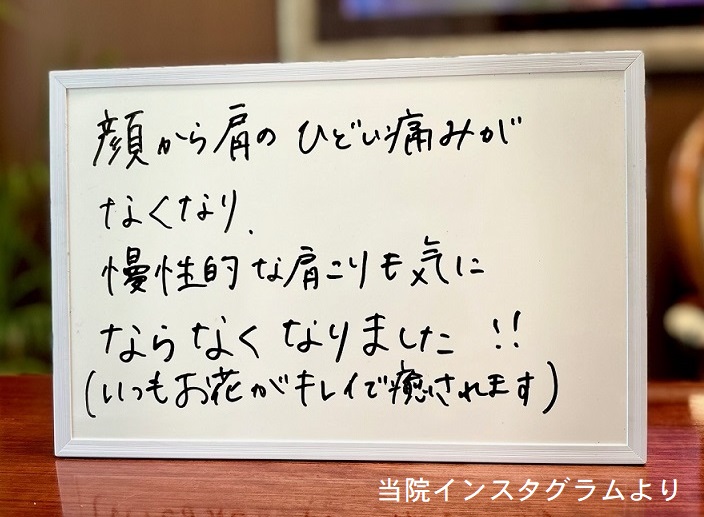 顔から肩のひどい痛みが
なくなり、
慢性的な肩こりも気に
ならなくなりました!!
(いつもお花がキレイで癒されます)
当院インスタグラムより